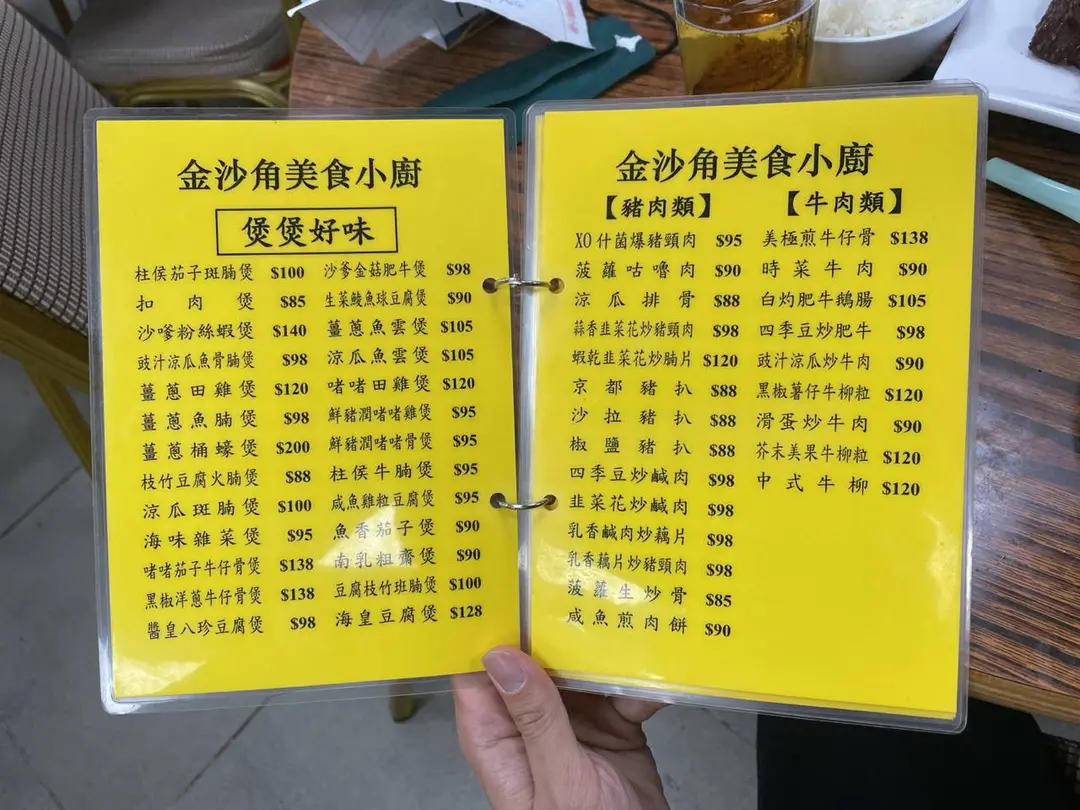 金沙角美食小廚
煲煲好味
柱侯茄子斑腩煲 $100
扣肉煲 $85
沙嗲粉絲蝦煲 $140
豉汁涼瓜魚骨腩煲 $98
薑蔥田雞煲 $120
薑蔥魚腩煲 $98
薑蔥桶蠔煲 $200
枝竹豆腐火腩煲 $88
涼瓜斑腩煲 $100
海味雜菜煲 $95
啫啫茄子牛仔骨煲 $138
黑椒洋蔥牛仔骨煲 $138
醬皇八珍豆腐煲 $98
沙爹金菇肥牛煲 $98
生菜鯪魚球豆腐煲 $90
薑蔥魚雲煲 $105
涼瓜魚雲煲 $105
啫啫田雞煲 $120
鮮豬潤啫啫雞煲 $95
鮮豬潤啫啫骨煲 $95
柱侯牛腩煲 $95
咸魚雞粒豆腐煲 $95
魚香茄子煲 $90
南乳粗齋煲 $90
豆腐枝竹班腩煲 $100
海皇豆腐煲 $128
金沙角美食小廚
【豬肉類】
XO什菌爆豬頸肉 $95
菠蘿咕嚕肉 $90
涼瓜排骨 $88
蒜香韭菜花炒豬頸肉 $98
蝦乾韭菜花炒腩片 $120
京都豬扒 $88
沙拉豬扒 $88
椒鹽豬扒 $88
四季豆炒鹹肉 $98
韭菜花炒鹹肉 $98
乳香鹹肉炒藕片 $98
乳香藕片炒豬頸肉 $98
菠蘿生炒骨 $85
咸魚煎肉餅 $90
【牛肉類】
美極煎牛仔骨 $138
時菜牛肉 $90
白灼肥牛鵝腸 $105
四季豆炒肥牛 $98
豉汁涼瓜炒牛肉 $90
黑椒薯仔牛柳粒 $120
滑蛋炒牛肉 $90
芥末美果牛柳粒 $120
中式牛柳 $120